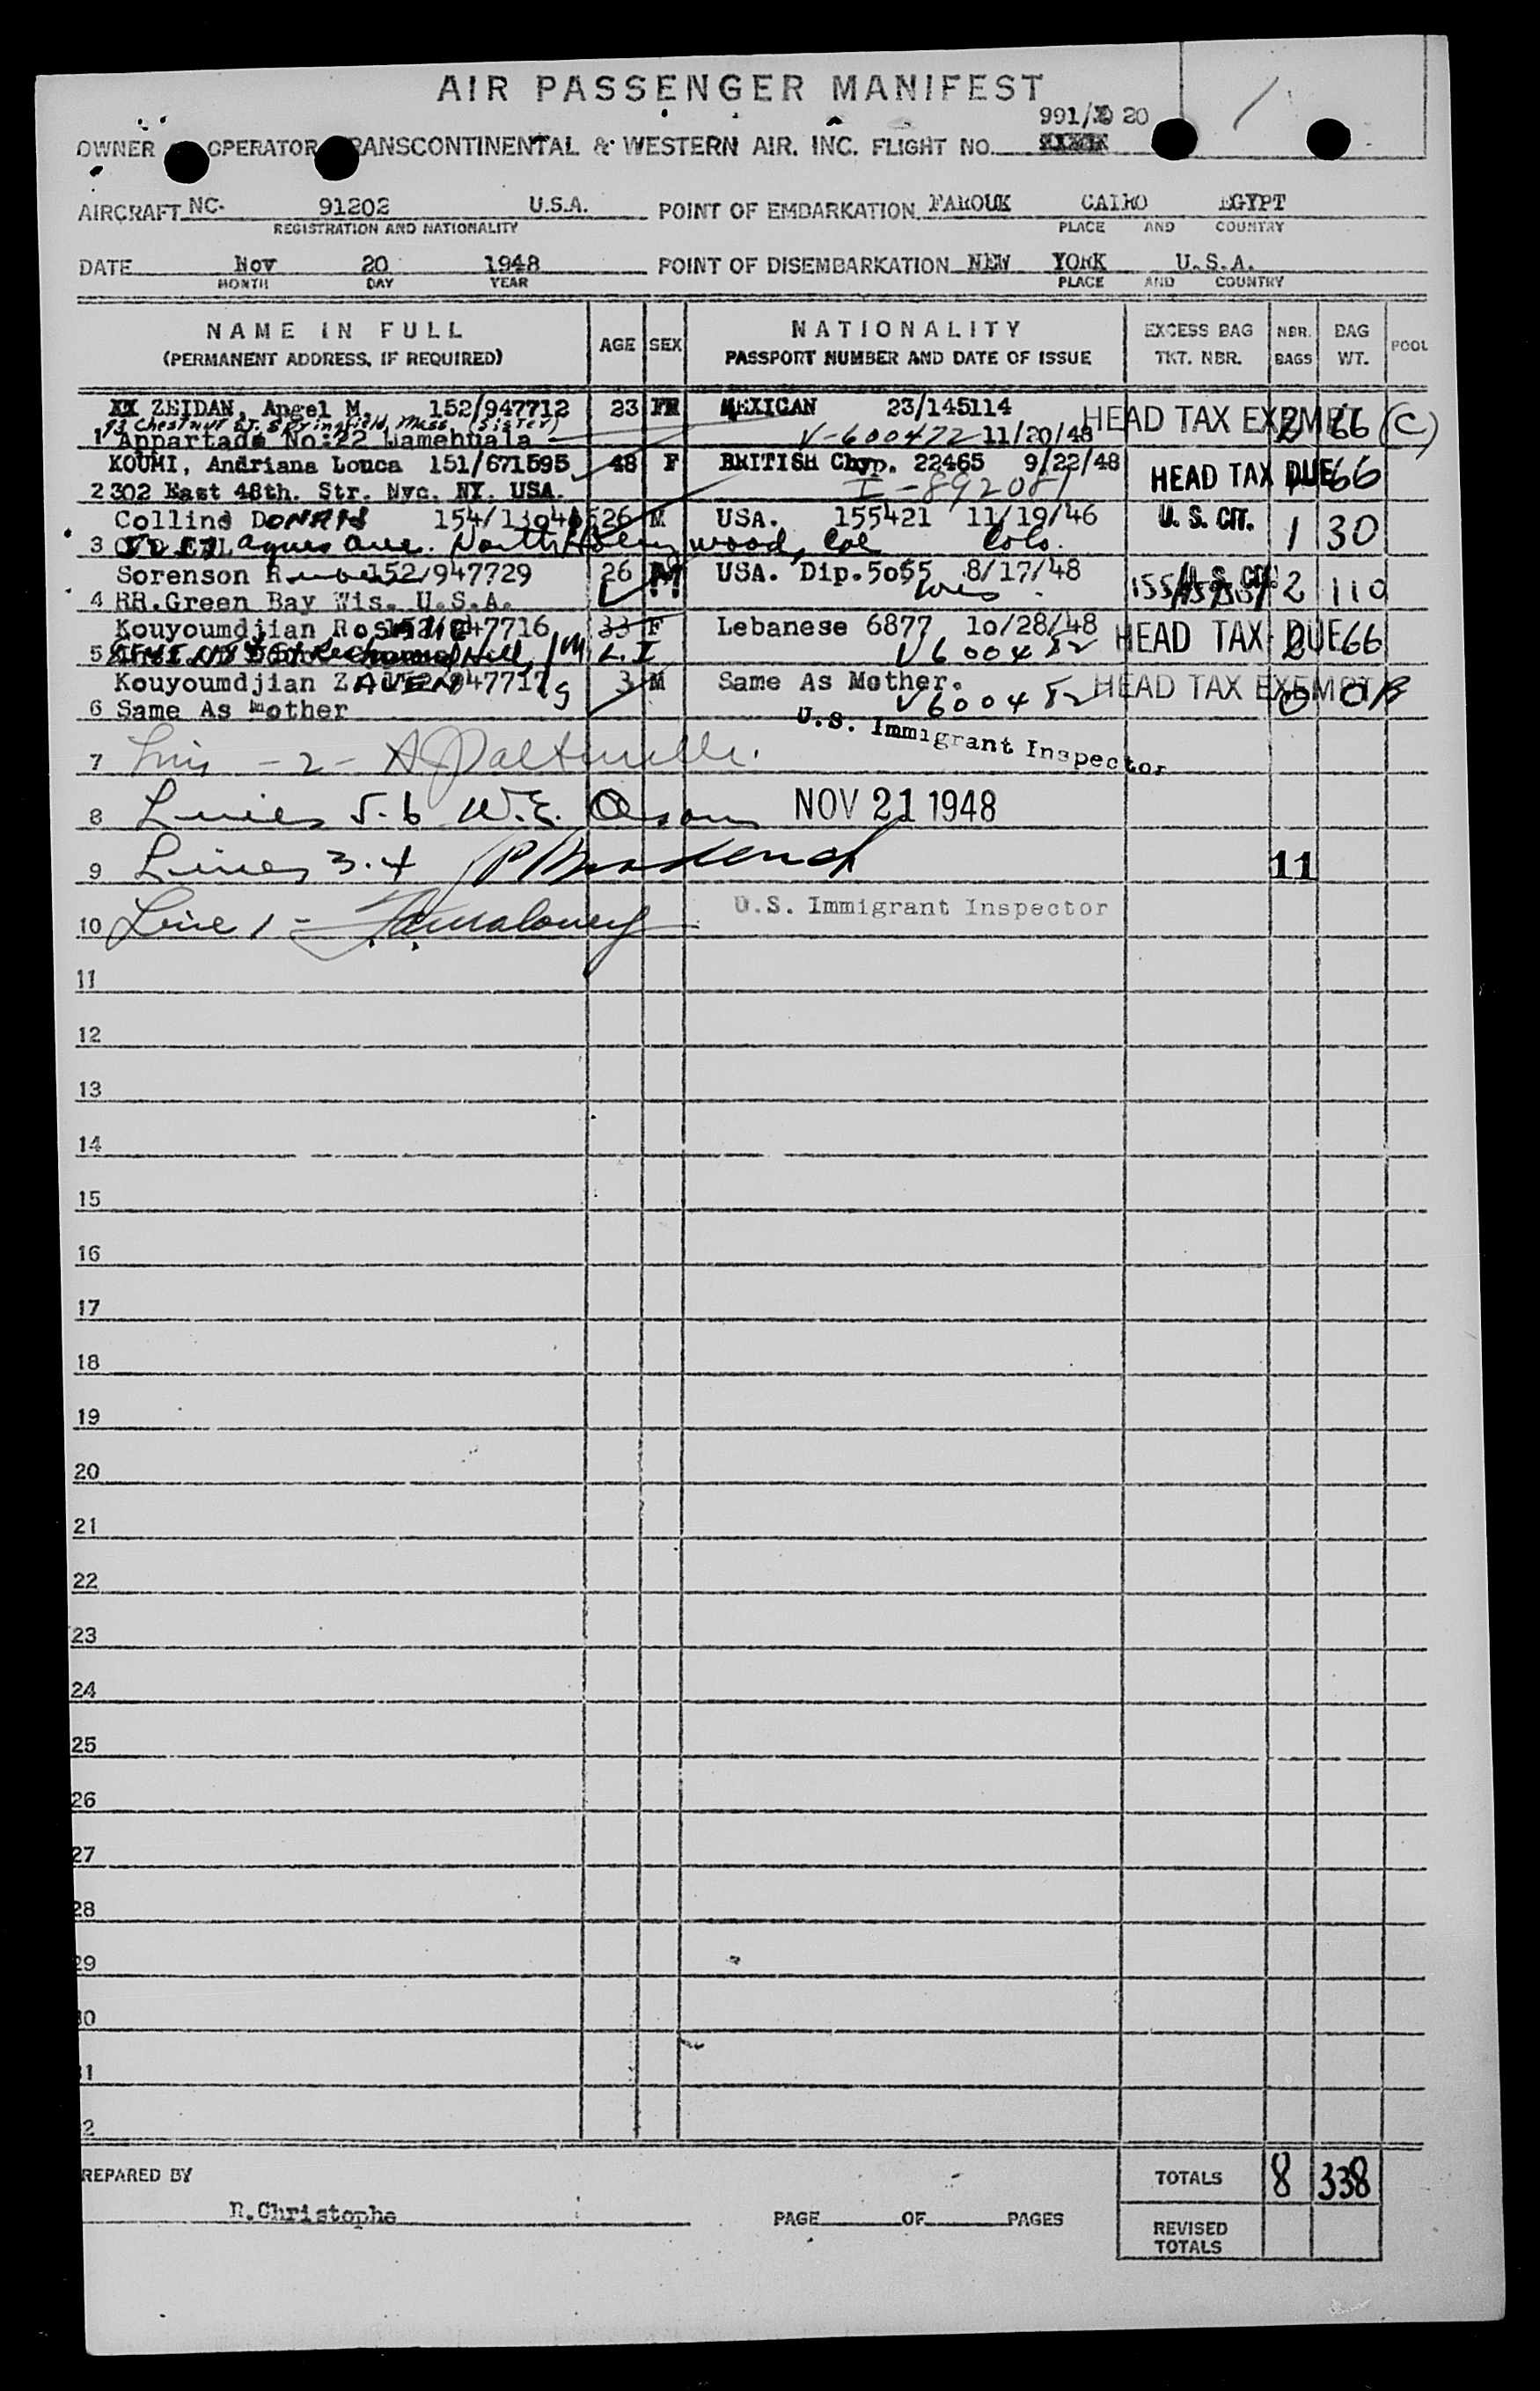 AIR PASSENGER MANIFEST
991/ 20
OWNER OPERATOR TRANSCONTINENTAL & WESTERN AIR. INC. FLIGHT NO.
AIRCRAFT NC- 91202 U.S.A. POINT OF EMBARKATION FAROUK CAIRO EGYPT
REGISTRATION AND NATIONALITY PLACE AND COUNTRY
DATE Nov 20 1948 POINT OF DISEMBARKATION NEW YORK U.S.A.
MONTH DAY YEAR PLACE AND COUNTRY
NAME IN FULL AGE SEX NATIONALITY EXCESS BAG NBR. BAG POOL
(PERMANENT ADDRESS, IF REQUIRED) PASSPORT NUMBER AND DATE OF ISSUE TKT. NBR. BAGS WT.
XX ZEIDAN, Angel M. 152/947712 23 MEXICAN 23/145114 HEAD TAX EXEMPT 2 66 (C)
93 Chestnut ST. Springfield, Mass (Sister)
1 Appartade No:22 V-600472 11/20/48
KOUMI, Andriana Louca 151/671595 48 F BRITISH Chyp. 22465 9/22/48 HEAD TAX DUE 66
2 302 East 48th. Str. Nyc. NY. USA. I-892081
Collins 26 M USA. 155421 11/19/46 U.S. CIT. 1 30
3 Agnes Ave. North Hollywood, Cal Colo.
Sorenson 152/947729 26 M USA. Dip.5055 8/17/48 U.S. CIT. 2 110
4 RR.Green Bay Wis. U.S.A. Wis.
Kouyoumdjian 152/947716 33 F Lebanese 6877 10/28/48 HEAD TAX DUE 66
5 L.I V600482
Kouyoumdjian ZAVEN 3 M Same As Mother. HEAD TAX EXEMPT 0 0
6 Same As Mother V600482
U.S. Immigrant Inspector
7 - 2 -
8 Lines 5-6 W.E. NOV 21 1948
9 Lines 3.4 11
10 Line 1 - Maloney U.S. Immigrant Inspector
11
12
13
14
15
16
17
18
19
20
21
22
23
24
25
26
27
28
29
30
31
32
PREPARED BY TOTALS 8 338
Christophe PAGE OF PAGES
REVISED
TOTALS